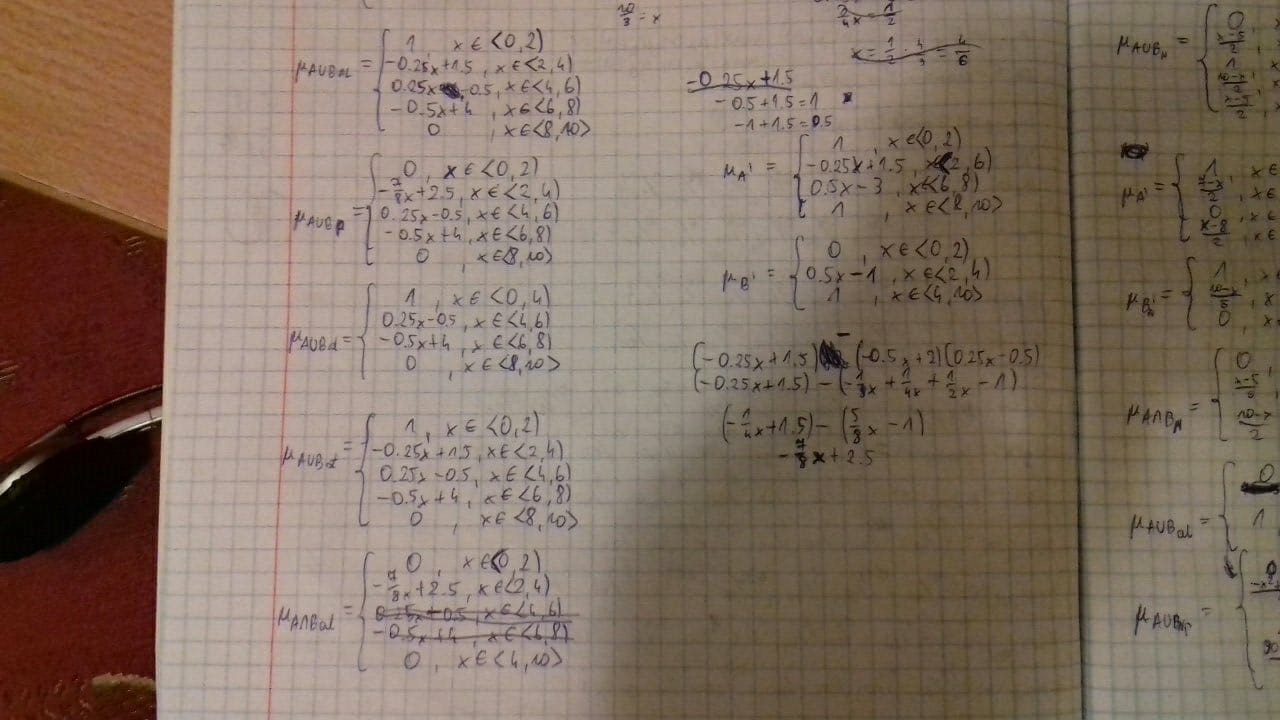 μ_{A∪Bm} = { 1, x∈<0,2)
-0.25x+1.5, x∈<2,4)
0.25x-0.5, x∈<4,6)
-0.5x+4, x∈<6,8)
0, x∈<8,10>
μ_{A∪Bp} = { 0, x∈<0,2)
-7/8x+2.5, x∈<2,4)
0.25x-0.5, x∈<4,6)
-0.5x+4, x∈<6,8)
0, x∈<8,10>
μ_{A∪Bd} = { 1, x∈<0,4)
0.25x-0.5, x∈<4,6)
-0.5x+4, x∈<6,8)
0, x∈<8,10>
μ_{A∪Bdt} = { 1, x∈<0,2)
-0.25x+1.5, x∈<2,4)
0.25x-0.5, x∈<4,6)
-0.5x+4, x∈<6,8)
0, x∈<8,10>
μ_{A∩Bd} = { 0, x∈<0,2)
-7/8x+2.5, x∈<2,4)
0.25x+0.5, x∈<4,6)
-0.5x+4, x∈<6,8)
0, x∈<4,10>
10/3 = x
3/4x = 1/2
x = 1/2 · 4/3 = 4/6
-0.25x+1.5
-0.5+1.5=1
-1+1.5=0.5
μ_{A'} = { 1, x∈<0,2)
-0.25x+1.5, x<2,6)
0.5x-3, x<6,8)
1, x∈<8,10>
μ_{B'} = { 0, x∈<0,2)
0.5x-1, x∈<2,4)
1, x∈<4,10>
(-0.25x+1.5) - (-0.5x+2)(0.25x-0.5)
(-0.25x+1.5) - (-1/8x + 1/4x + 1/2x - 1)
(-1/4x+1.5) - (5/8x - 1)
-7/8x + 2.5
μ_{A∪BM} = { 0
x-5/2
1, x
10-x/2
μ_{A'} = { 1, x∈
0, x∈
x-8/2, x∈
μ_{B'} = { 1,
0, x
μ_{A∩BM} = { 0
x-5
10-x/2
μ_{A∪Bd} = { 0
1
μ_{A∪B} = { 0